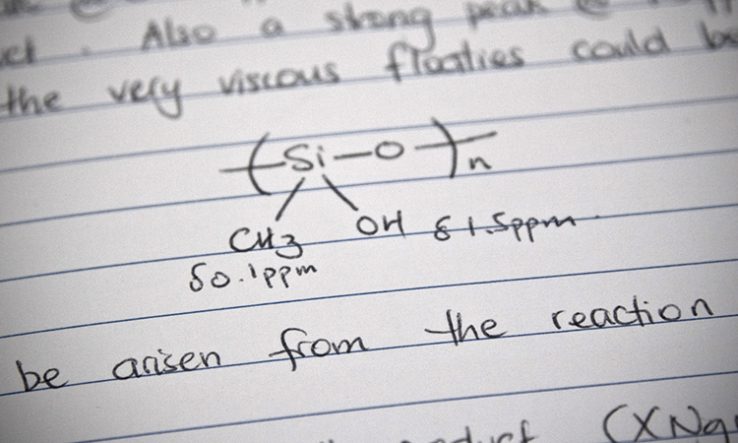 Also a strong peak @
the very viscous floaties could be
(Si-O)n
CH3 OH δ 1.5ppm
δ0.1ppm
be arisen from the reaction
(XNg